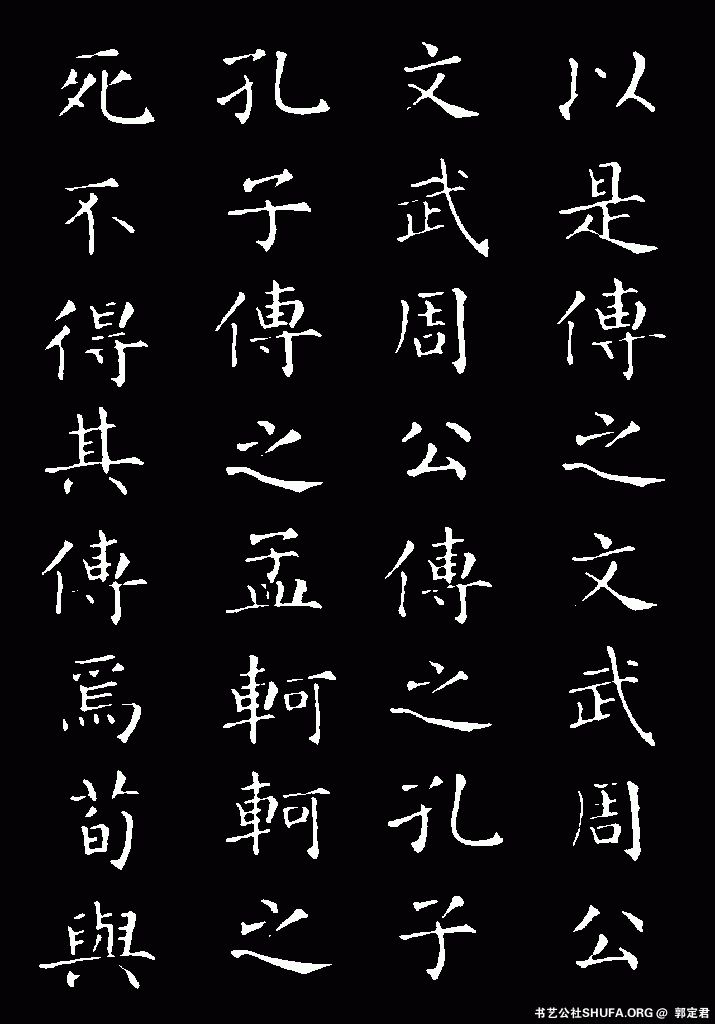 以是傳之文武周公
文武周公傳之孔子
孔子傳之孟軻軻之
死不得其傳焉荀與
书艺公社SHUFA.ORG @ 郭定君